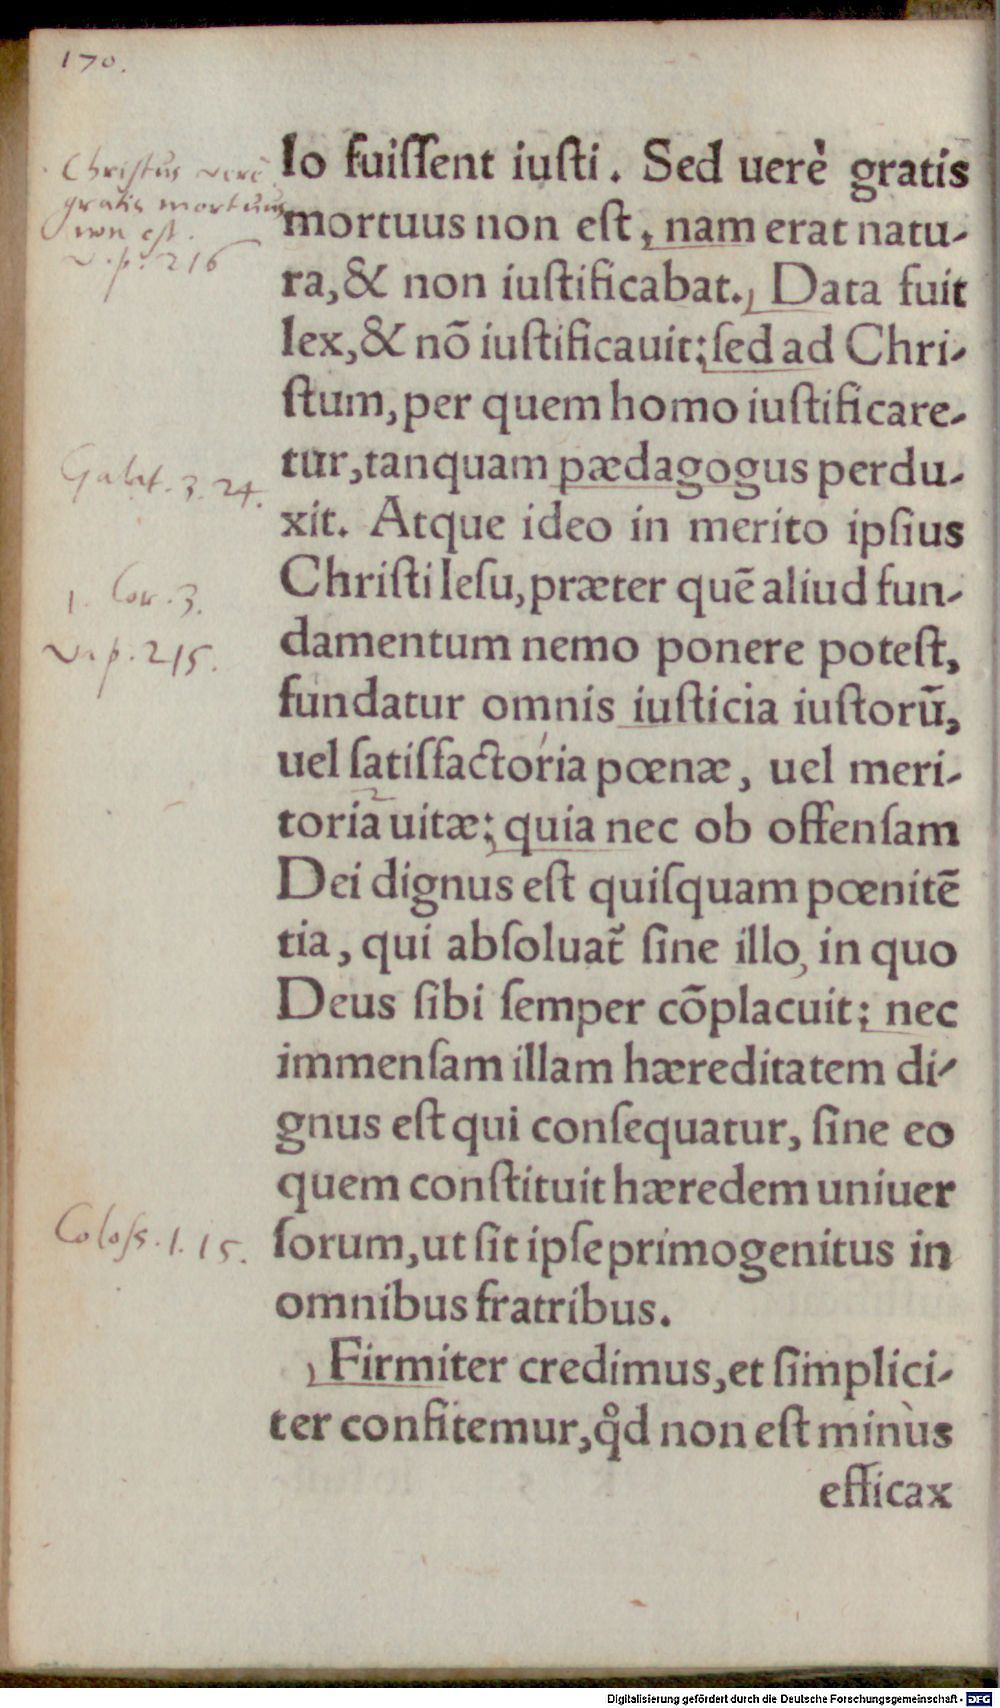 170.
Christus verè
gratis mortuus
non est.
v. p. 216
lo fuiſſent iuſti. Sed uerè gratis
mortuus non eſt, nam erat natu-
ra, & non iuſtificabat. Data fuit
lex, & nõ iuſtificauit; ſed ad Chri-
ſtum, per quem homo iuſtificare-
tur, tanquam pædagogus perdu-
Galat. 3. 24.
xit. Atque ideo in merito ipſius
Chriſti Ieſu, præter quē aliud fun-
1. Cor. 3.
damentum nemo ponere poteſt,
v. p. 215.
fundatur omnis iuſticia iuſtorū,
uel ſatiſfactoria pœnæ, uel meri-
toria uitæ; quia nec ob offenſam
Dei dignus eſt quiſquam pœnitē
tia, qui abſoluat᷑ ſine illo, in quo
Deus ſibi ſemper cõplacuit; nec
immenſam illam hæreditatem di-
gnus eſt qui conſequatur, ſine eo
quem conſtituit hæredem uniuer
Coloſs. 1. 15.
ſorum, ut ſit ipſe primogenitus in
omnibus fratribus.
Firmiter credimus, et ſimplici-
ter confitemur, qͦd non eſt minùs
efficax
Digitalisierung gefördert durch die Deutsche Forschungsgemeinschaft - DFG